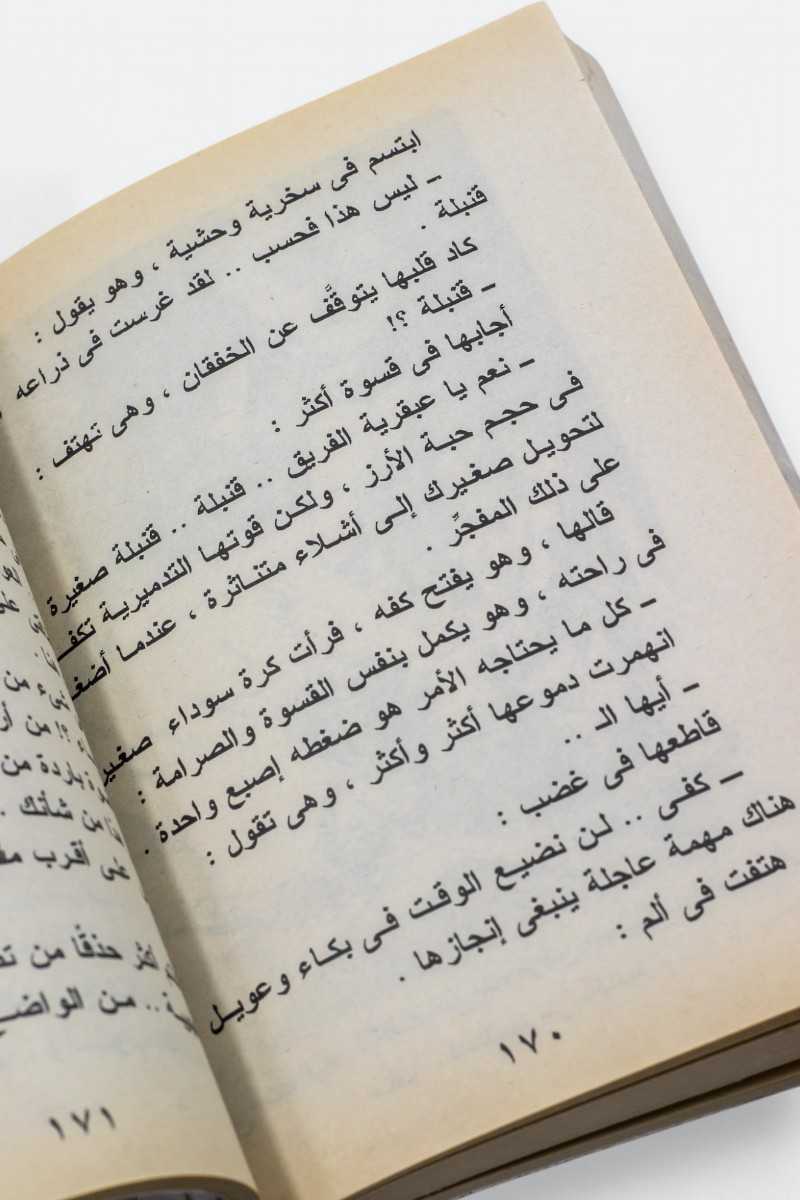 ابتسم فى سخرية وحشية ، وهو يقول :
ـ ليس هذا فحسب .. لقد غرست فى ذراعه
قنبلة .
كاد قلبها يتوقَّف عن الخفقان ، وهى تهتف :
ـ قنبلة ؟!
أجابها فى قسوة أكثر :
ـ نعم يا عبقرية الفريق .. قنبلة .. قنبلة صغيرة
فى حجم حبة الأرز ، ولكن قوتها التدميرية
لتحويل صغيرك إلى أشلاء متناثرة ، عندما
على ذلك المفجِّر .
قالها ، وهو يفتح كفه ، فرأت كرة سوداء
فى راحته ، وهو يكمل بنفس القسوة والصرامة :
ـ كل ما يحتاجه الأمر هو ضغطه إصبع واحدة .
انهمرت دموعها أكثر وأكثر ، وهى تقول :
ـ أيها الـ ..
قاطعها فى غضب :
ـ كفى .. لن نضيع الوقت فى بكاء وعويل
هناك مهمة عاجلة ينبغى إنجازها .
هتفت فى ألم :
١٧٠
من
؟! من
باردة من
من شأنك .
على أقرب
أكثر حذقًا من
.. من الواضح
١٧١